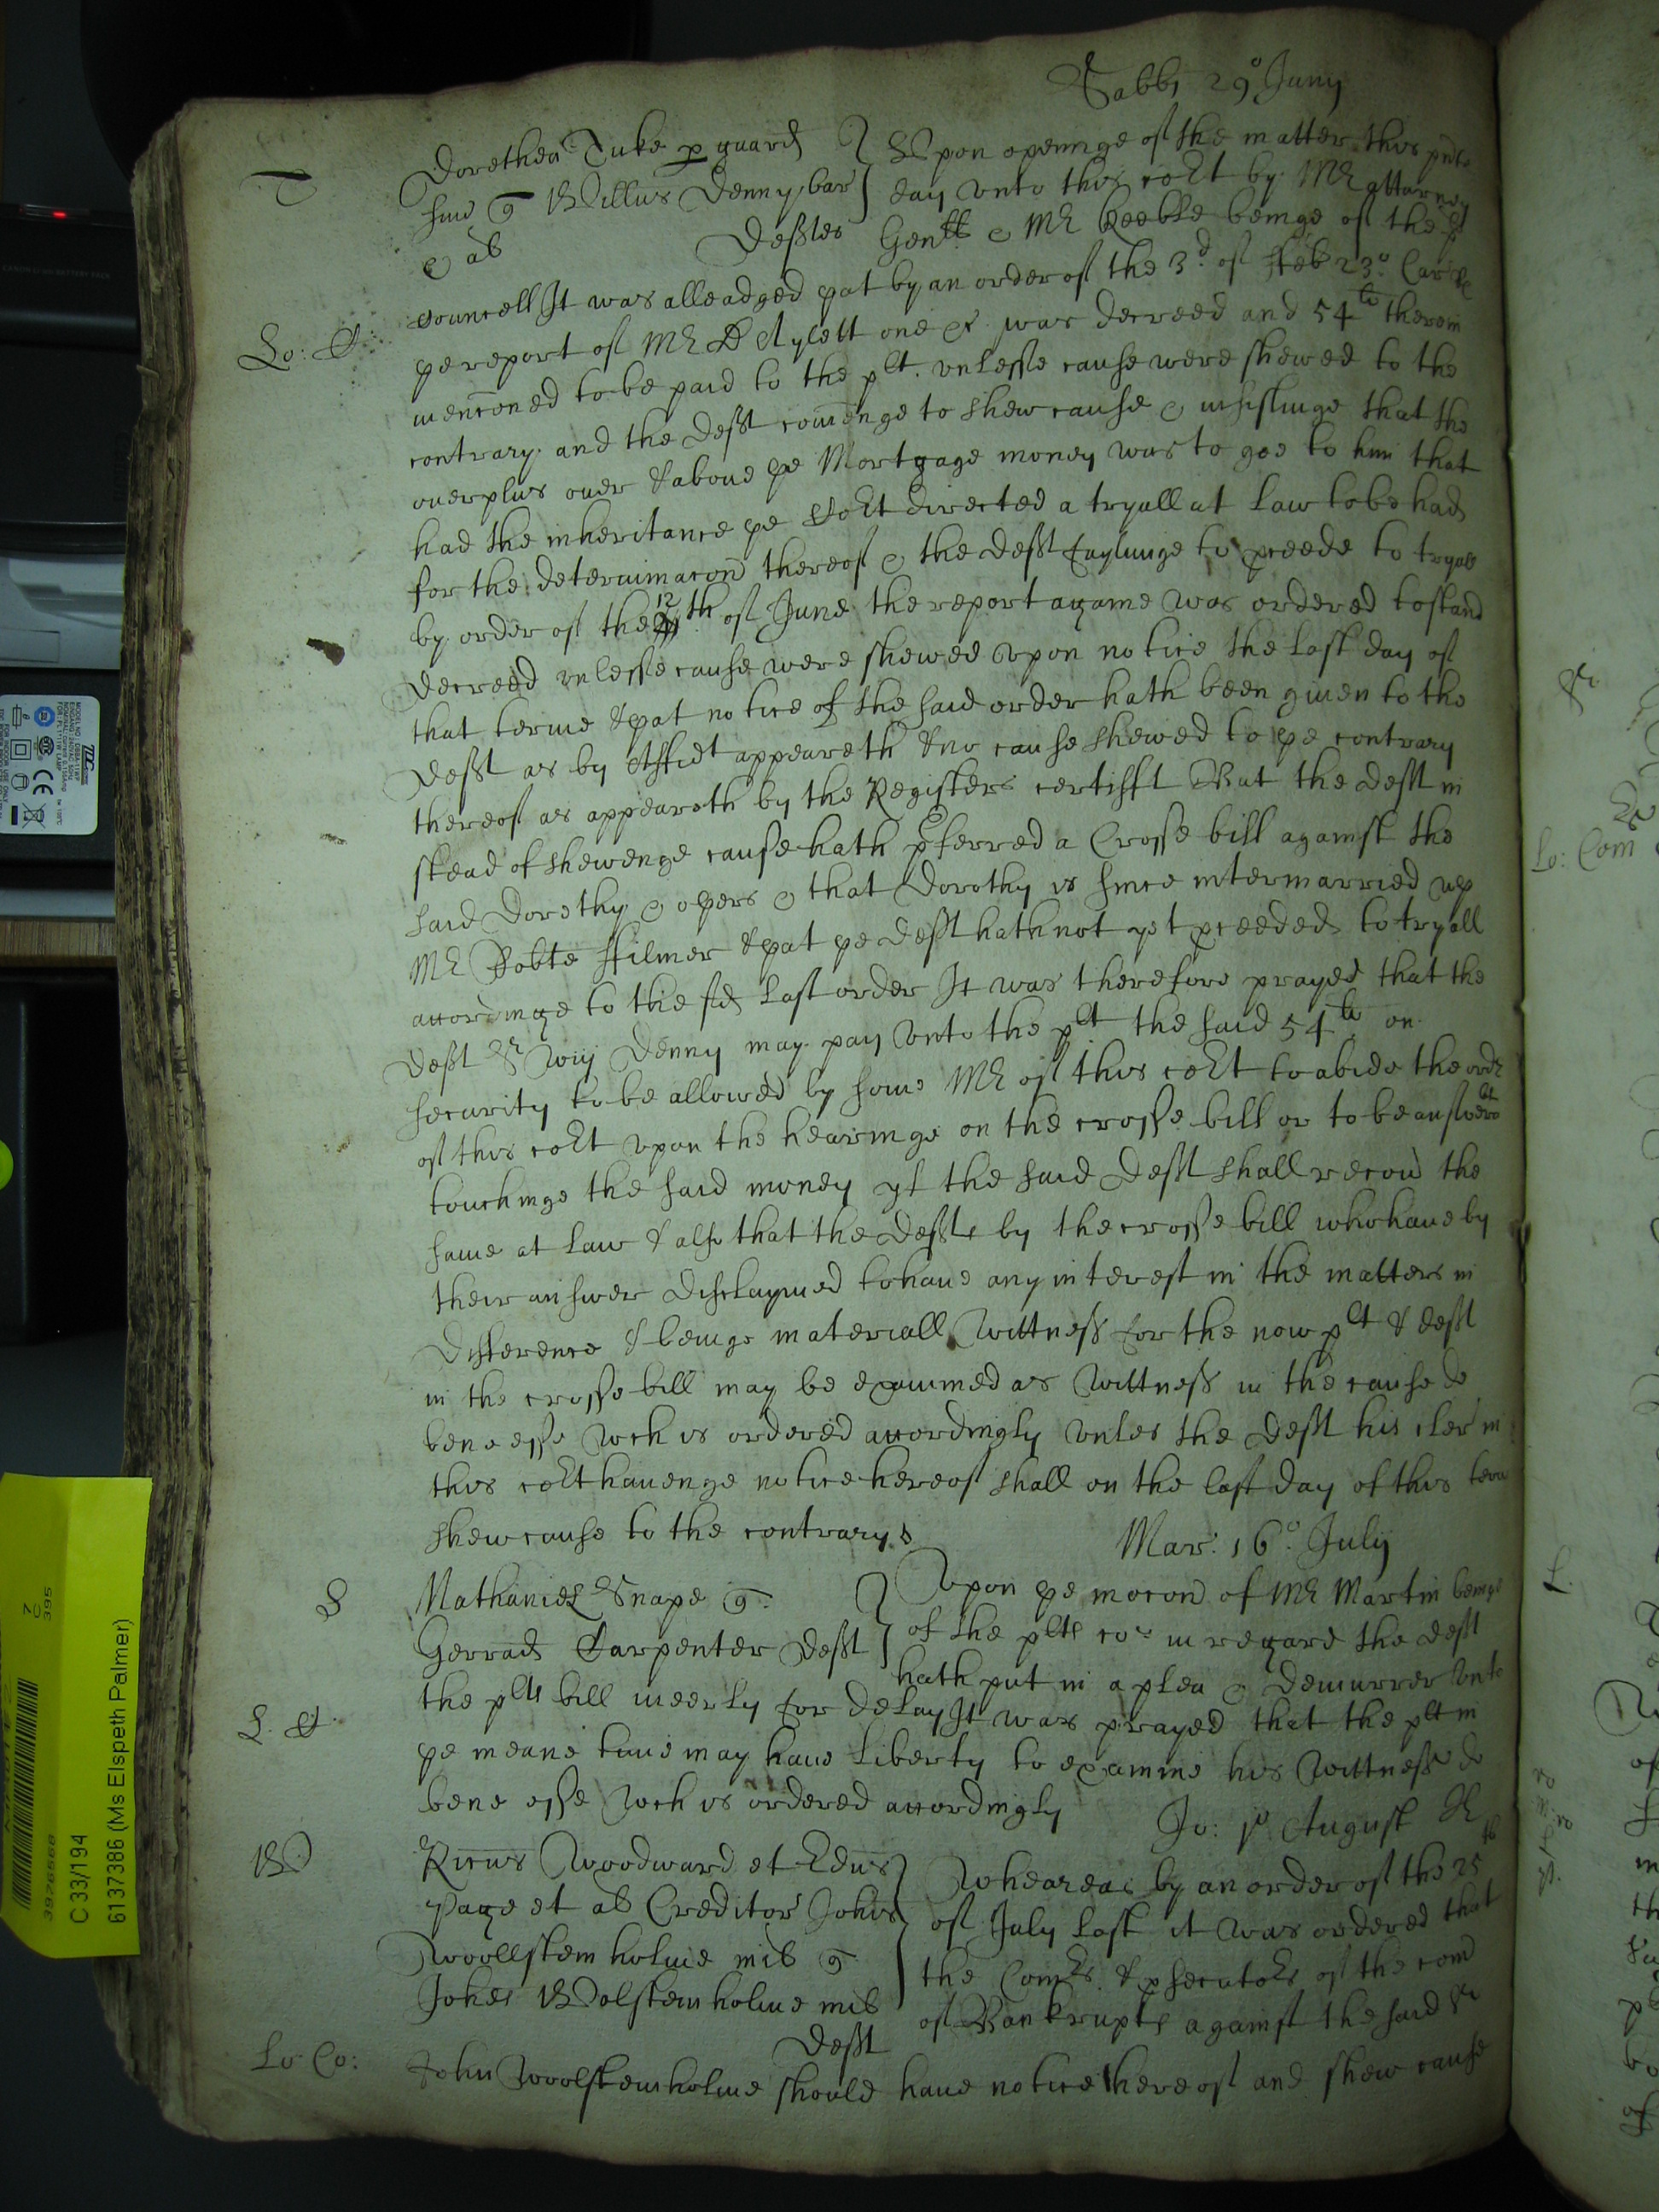 Sabbi 29º Juny
T
Dorethea Tuke p guard
suu q Willus Denny bar
e ab Desstes
Upon openinge of the matter this pnte
day vnto this coʳt by Mʳ Attarney
Genʳˡˡ e Mʳ Keeble beinge of the
Lo: A:
councell It was alleadged yat by an order of the 3d of ffeb 23º Car
ye report of Mʳ Dʳ Aylett one &c was decreed and 54li therein
menconed to be paid to the plt. vnlesse cause were shewed to the
contrary. and the Desst comenge to shew cause e insistinge that the
ouerplus ouer & aboue ye Mortgage money was to goe to him that
had the inheritance ye Coʳt directed a tryall at Law to be had
for the determinacon thereof e the Desst faylinge to pceede to tryall
by order of the 12th of June the report againe was ordered to stand
Decreed vnlesse cause were shewed vpon notice the last day of
that terme & yat notice of the said order hath been giuen to the
Desst as by Affidt appeareth & no cause shewed to ye contrary
thereof as appeareth by the Registers certifft But the Desst in
stead of shewenge cause hath pferred a Crosse bill against the
said Dorothy e oyers e that Dorothy is since intermarried wth
Mʳ Robte ffilmer & yat ye Desst hath not yet pceeded to tryall
accordinge to the sd last order It was therefore prayed that the
Desst Sʳ Wm Denny may pay vnto the plt the said 54li on
security to be allowed by some Mʳ of this coʳt to abide the ordʳ
of this coʳt vpon the hearinge on the crosse bill or to be answerable
touchinge the said money yf the said Desst shall recou the
same at Law & also that the Dessts by the crosse bill who haue by
their answer disclaymed to haue any interest in the matters in
Difference & beinge materiall Wittness for the now plt & desst
in the crosse bill may be examined as Wittness in the cause de
bene esse Wch is ordered accordingly vnles the Desst his cler in
this coʳt hauenge notice hereof shall on the last day of this terme
shew cause to the contrary
Mar: 16º July
S
Nathaniel Snape q
Gerrard Carpenter Desst
Vpon ye mocon of Mʳ Martin beinge
of the plts coʳ in regard the Desst
hath put in a plea e Demurrer vnto
L. A.
the plts bill meerly for delay It was prayed that the plt in
ye meane time may haue liberty to examine his Wittness de
bene esse Wch is ordered accordingly
Jo: 1º August
W
Ricus Woodward et Edus
Page et ab Creditor Johis
Woollstemholme mil q
Johes Wolstemholme mil
Desst
Wheareas by an order of the 25th
of July last it was ordered that
the Comʳs & psecutoʳs of the com
of Bankrupts against the said Sʳ
Lo Co:
John Woolstemholme should haue notice thereof and shew cause
Lo: Com
TTC
MODEL NO
CE
C 33/194
6137386 (Ms Elspeth Palmer)